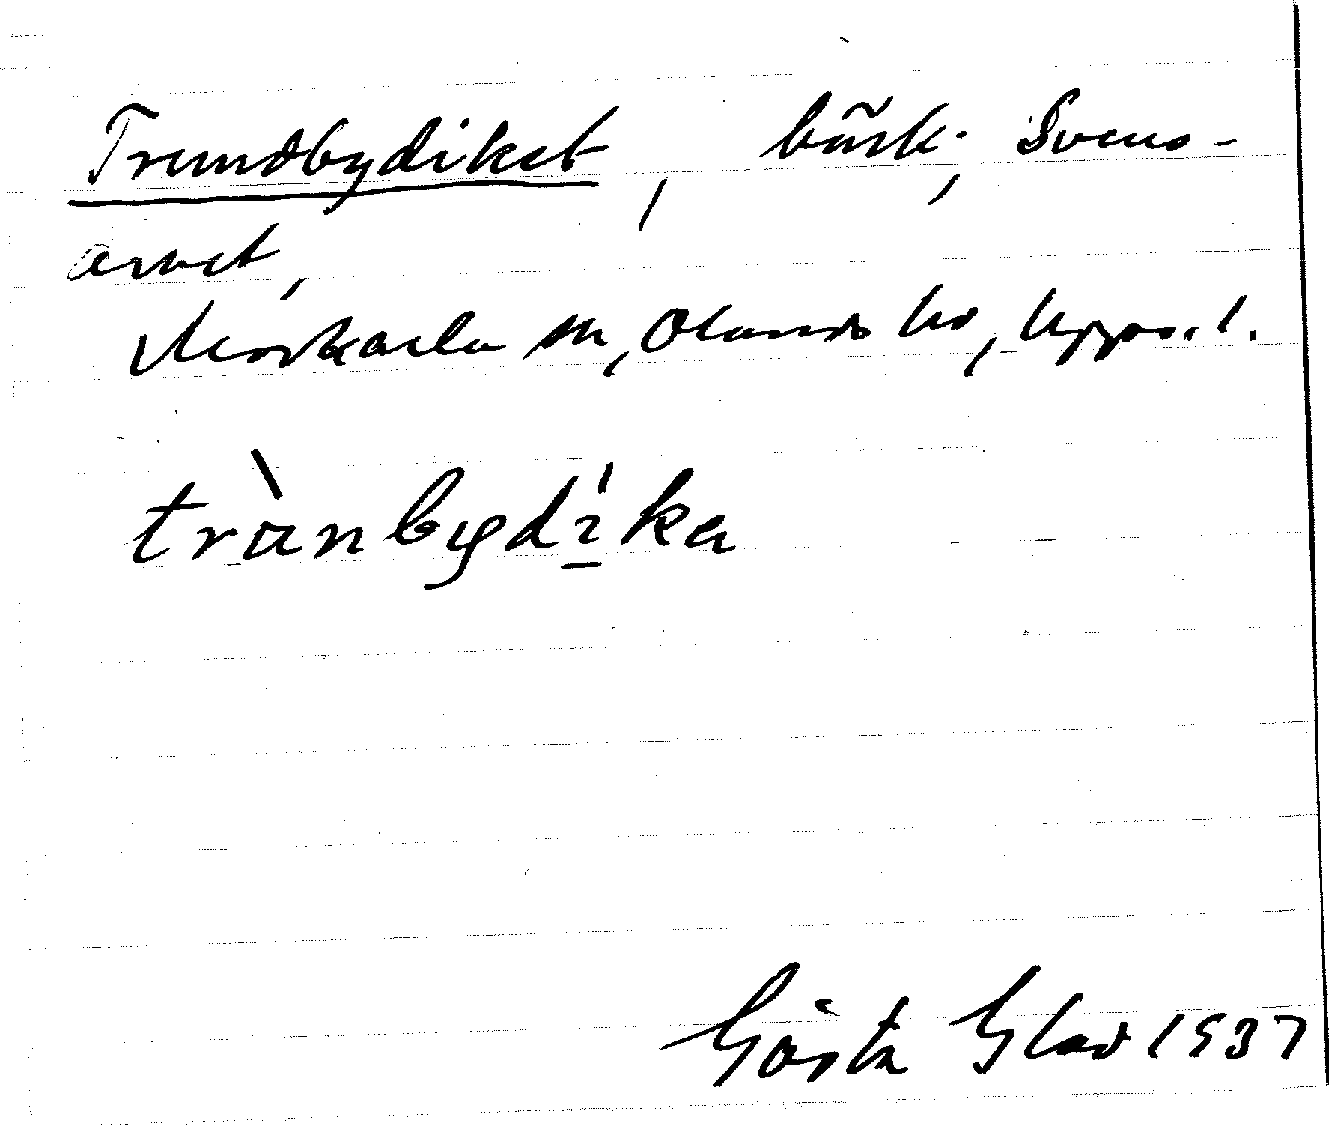 Trundbydiket, bäck, Svens-
arvet,
Morkarla sn, Olands hd, Upps. l.
trùnbydı̍ka
Gösta Glad 1937